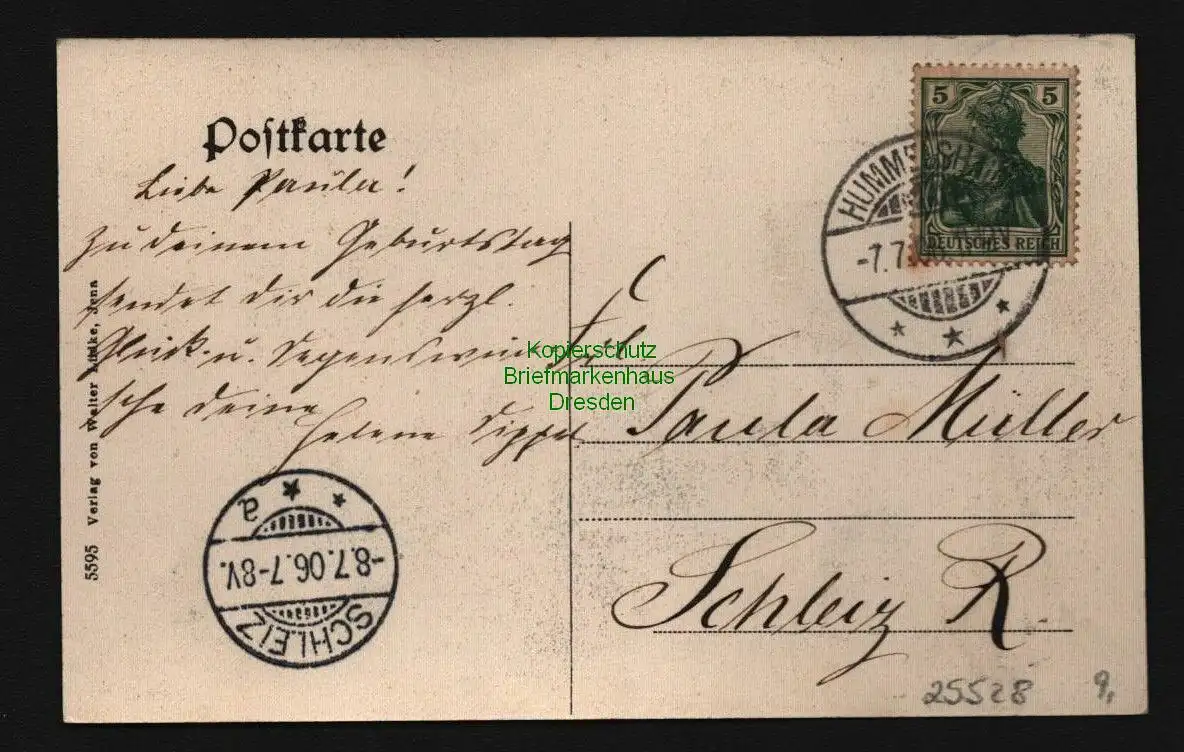 Postkarte
Liebe Paula!
Zu deinem Geburtstag
sendet dir die herzl.
Glück- u. Segenswün-
sche deine
Helene
Frl.
Paula Müller
Schleiz R.
5
5
DEUTSCHES REICH
HUMMELSHAIN
-7.7.06
SCHLEIZ
-8.7.06.7-8V.
a
5595 Verlag von Walter Lüdke, Jena
Kopierschutz
Briefmarkenhaus
Dresden
25528
9,